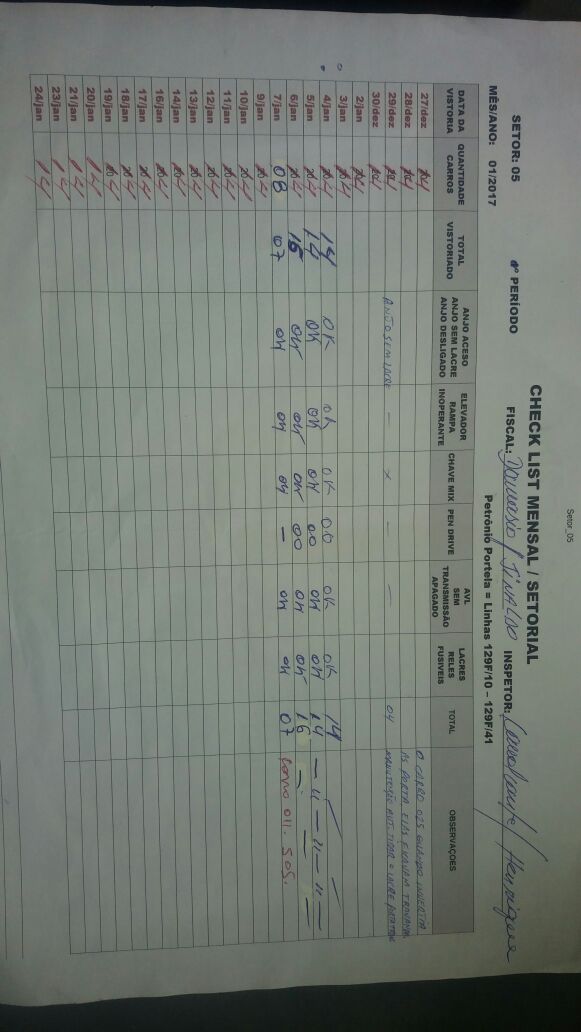 Setor_05
CHECK LIST MENSAL / SETORIAL
SETOR: 05 PERÍODO FISCAL: Damasio / JINALDO INSPETOR: Cavalcante / Henrique
MÊS/ANO: 01/2017 Petrônio Portela = Linhas 129F/10 – 129F/41
DATA DA VISTORIA QUANTIDADE CARROS TOTAL VISTORIADO ANJO ACESO ANJO SEM LACRE ANJO DESLIGADO ELEVADOR RAMPA INOPERANTE CHAVE MIX PEN DRIVE AVL SEM TRANSMISSÃO APAGADO LACRES RELES FUSIVEIS TOTAL OBSERVAÇOES
27/dez 14 O CARRO 025 QUANDO INVERTIA
28/dez 14 AS PORTA ELAS FICAVAM TRAVANDO
29/dez ANJO SEM LACRE — x — — 04 MANUTENÇÃO AUT. TIRAR O LACRE
30/dez 14
2/jan 14
3/jan 14
4/jan 14 14 OK OK OK 00 OK OK 14
5/jan 14 14 OK OK OK 00 OK OK 14 — " — " — " —
6/jan 14 16 OK OK OK 00 OK OK 16
7/jan 08 07 OK OK OK — OK OK 07 Carro 011. SOS.
9/jan 14
10/jan 14
11/jan 14
12/jan 14
13/jan 14
14/jan 14
16/jan 14
17/jan 14
18/jan 14
19/jan 14
20/jan 14
21/jan 14
23/jan 14
24/jan 14